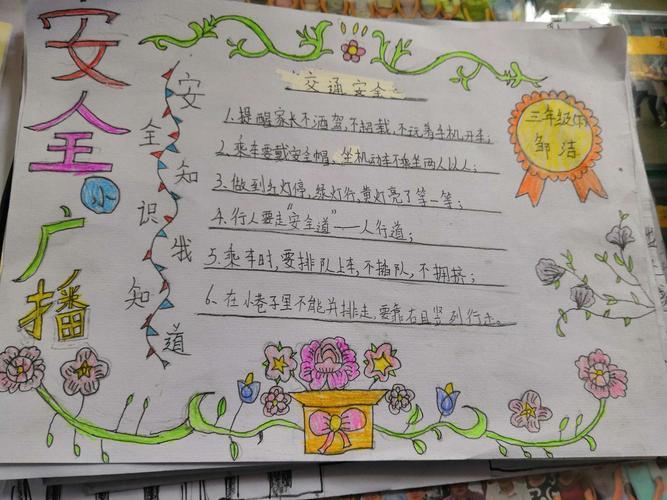 安全小广播
安全知识我知道
交通安全
三年级(1)
邹洁
1.提醒家长不酒驾,不超载,不玩着手机开车;
2.乘车要戴安全帽、坐机动车不乘坐两人以上;
3.做到红灯停,绿灯行,黄灯亮了等一等;
4.行人要走"安全道"——人行道;
5.乘车时,要排队上车,不插队,不拥挤;
6.在小巷子里不能并排走,要靠右且竖列行走。